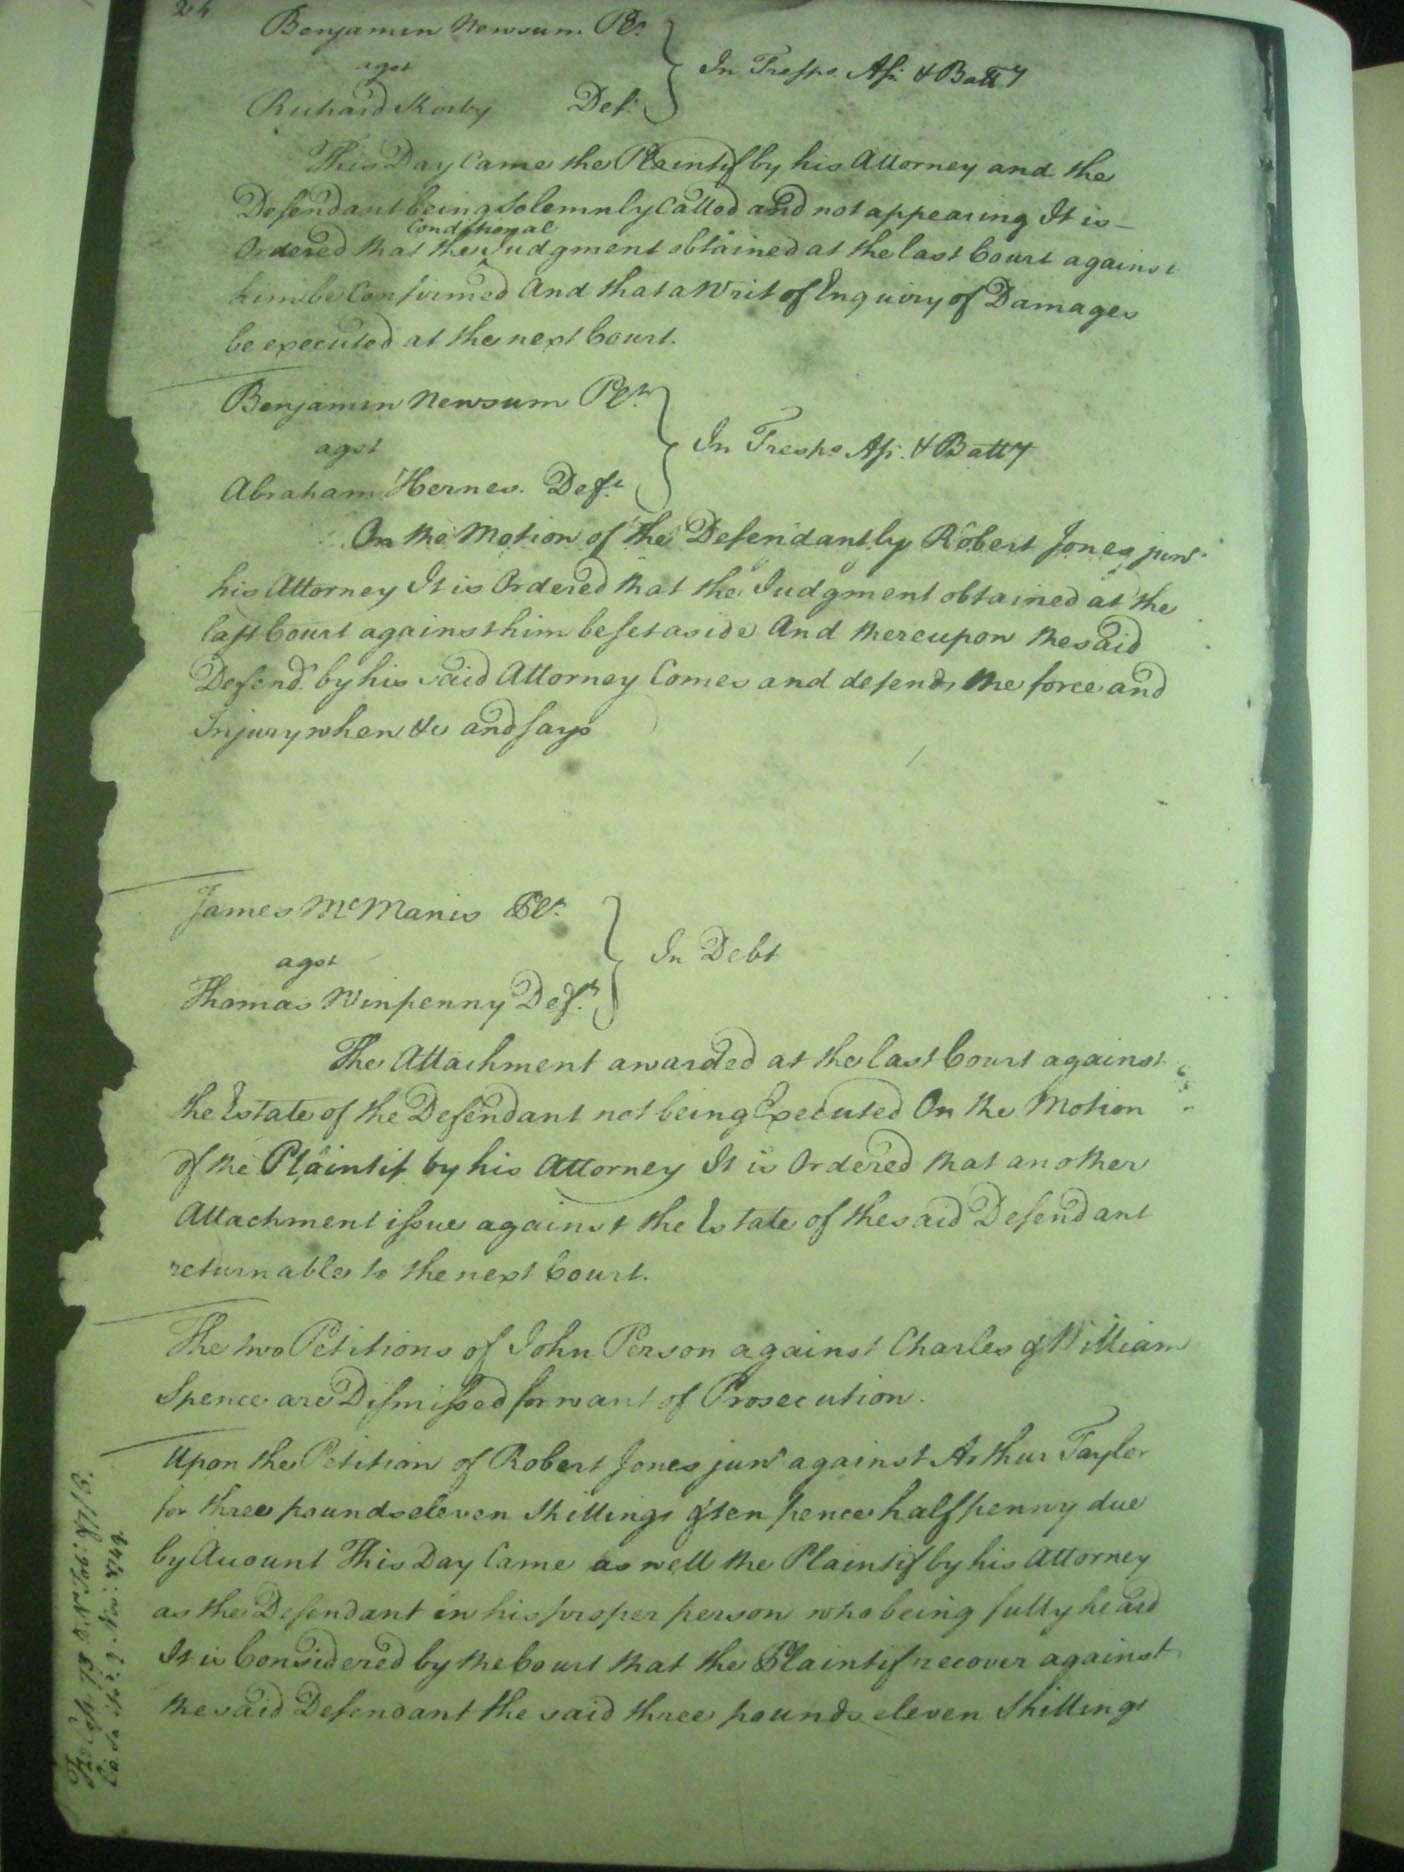 24
Benjamin Newsum Plt.
agst
Richard Kirby Deft.
In Tresps. Ass. & Batty
This Day Came the Plaintif by his Attorney and the
Defendant being Solemnly Called and not appearing It is
Conditional
Ordered that the Judgment obtained at the last Court against
him be Confirmed And that a Writ of Enquiry of Damages
be executed at the next Court.
Benjamin Newsum Plt.
agst
Abraham Hernes Deft.
In Tresps Ass. & Batty
On the Motion of the Defendant by Robert Jones junr
his Attorney It is Ordered that the Judgment obtained at the
last Court against him be set aside And thereupon the said
Defendt. by his said Attorney Comes and defends the force and
Injury when &c and says
James McManis Plt.
agst
Thomas Winpenny Deft.
In Debt
The Attachment awarded at the last Court against
the Estate of the Defendant not being Executed On the Motion
of the Plaintif by his Attorney It is Ordered that another
Attachment issue against the Estate of the said Defendant
returnable to the next Court.
The two Petitions of John Person against Charles & William
Spence are Dismissed for want of Prosecution.
Upon the Petition of Robert Jones junr against Arthur Tayler
for three pounds eleven Shillings & ten pence half penny due
by Account This Day Came as well the Plaintif by his Attorney
as the Defendant in his proper person who being fully heard
It is Considered by the Court that the Plaintif recover against
the said Defendant the said three pounds eleven Shillings